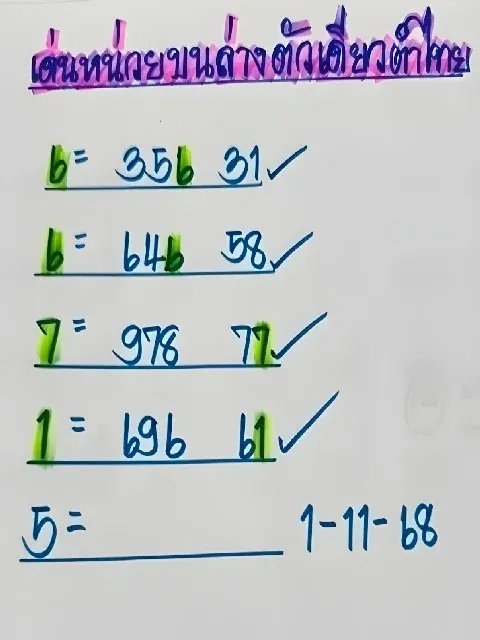 เด่นหน่วยบนล่างตัวเดียวต่ำไทย
6= 356 31✓
6= 646 58✓
7= 978 77✓
1= 696 61✓
5= 1-11-68